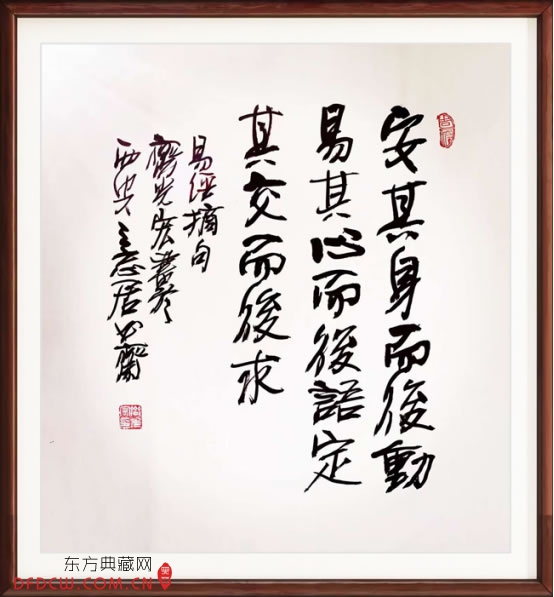 安其身而後動
易其心而後語定
其交而後求
易经摘句
东方典藏网
DFDCW.COM.CN